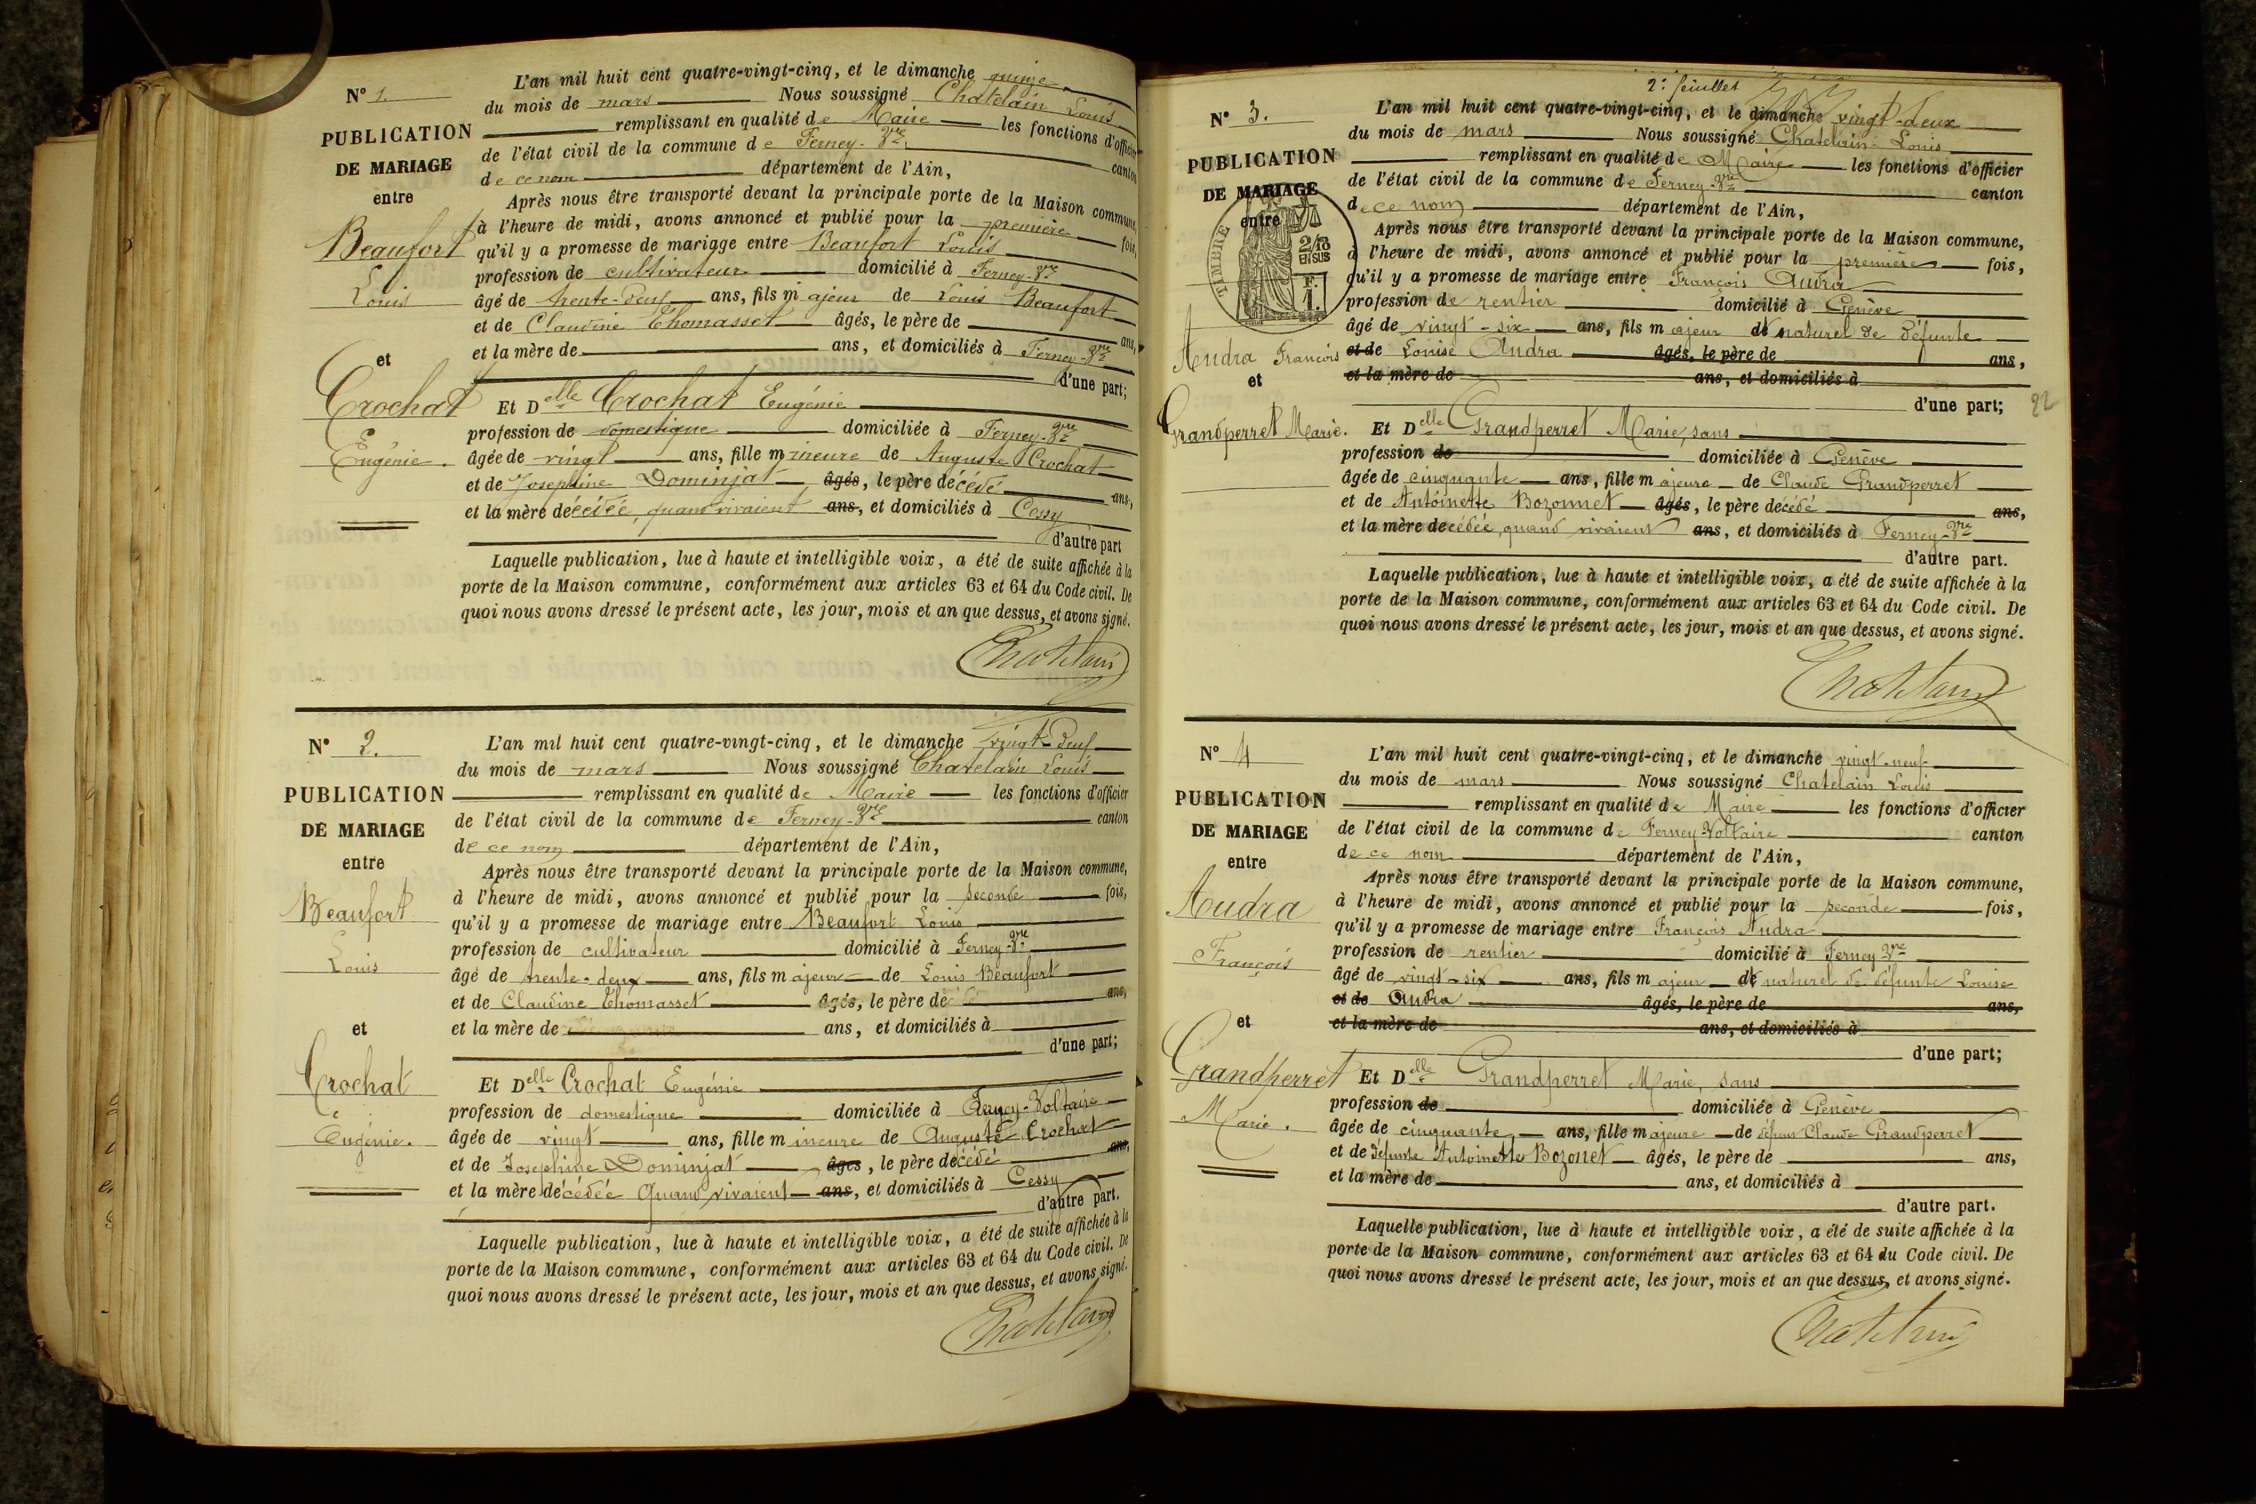 N° 1.
PUBLICATION
DE MARIAGE
entre
Beaufort
Louis
et
Crochat
Eugénie.
L'an mil huit cent quatre-vingt-cinq, et le dimanche quinze
du mois de mars Nous soussigné Chatelain Louis
remplissant en qualité de Maire les fonctions d'officier
de l'état civil de la commune de Ferney-Vre canton
de ce nom département de l'Ain,
Après nous être transporté devant la principale porte de la Maison commune,
à l'heure de midi, avons annoncé et publié pour la première fois,
qu'il y a promesse de mariage entre Beaufort Louis
profession de cultivateur domicilié à Ferney-Vre
âgé de trente-deux ans, fils majeur de Louis Beaufort
et de Claudine Thomasset âgés, le père de ans,
et la mère de ans, et domiciliés à Ferney-Vre
d'une part;
Et Delle Crochat Eugénie
profession de domestique domiciliée à Ferney-Vre
âgée de vingt ans, fille mineure de Auguste Crochat
et de Josephine Dominjat âgés, le père décédé ans,
et la mère décédée, quand vivaient ans, et domiciliés à Cessy
d'autre part
Laquelle publication, lue à haute et intelligible voix, a été de suite affichée à la
porte de la Maison commune, conformément aux articles 63 et 64 du Code civil. De
quoi nous avons dressé le présent acte, les jour, mois et an que dessus, et avons signé.
Chatelain
N° 2.
PUBLICATION
DE MARIAGE
entre
Beaufort
Louis
et
Crochat
Eugénie.
L'an mil huit cent quatre-vingt-cinq, et le dimanche vingt-deux
du mois de mars Nous soussigné Chatelain Louis
remplissant en qualité de Maire les fonctions d'officier
de l'état civil de la commune de Ferney-Vre canton
de ce nom département de l'Ain,
Après nous être transporté devant la principale porte de la Maison commune,
à l'heure de midi, avons annoncé et publié pour la seconde fois,
qu'il y a promesse de mariage entre Beaufort Louis
profession de cultivateur domicilié à Ferney-Vre
âgé de trente-deux ans, fils majeur de Louis Beaufort
et de Claudine Thomasset âgés, le père de ans,
et la mère de ans, et domiciliés à
d'une part;
Et Delle Crochat Eugénie
profession de domestique domiciliée à Ferney-Voltaire
âgée de vingt ans, fille mineure de Auguste Crochat
et de Josephine Dominjat âgés, le père décédé ans,
et la mère décédée Quand vivaient ans, et domiciliés à Cessy
d'autre part.
Laquelle publication, lue à haute et intelligible voix, a été de suite affichée à la
porte de la Maison commune, conformément aux articles 63 et 64 du Code civil. De
quoi nous avons dressé le présent acte, les jour, mois et an que dessus, et avons signé.
Chatelain
2e feuillet
N° 3.
PUBLICATION
DE MARIAGE
entre
TIMBRE
2/10
EN SUS
F.
1.
Audra François
et
Grandperret Marie.
L'an mil huit cent quatre-vingt-cinq, et le dimanche vingt-deux
du mois de mars Nous soussigné Chatelain Louis
remplissant en qualité de Maire les fonctions d'officier
de l'état civil de la commune de Ferney-Vre canton
de ce nom département de l'Ain,
Après nous être transporté devant la principale porte de la Maison commune,
à l'heure de midi, avons annoncé et publié pour la première fois,
qu'il y a promesse de mariage entre François Audra
profession de rentier domicilié à Genève
âgé de vingt-six ans, fils majeur de naturel de défunte
et de Louise Audra âgés, le père de ans,
et la mère de ans, et domiciliés à
d'une part; 22
Et Delle Grandperret Marie, sans
profession de domiciliée à Genève
âgée de cinquante ans, fille majeure de Claude Grandperret
et de Antoinette Bozonnet âgés, le père décédé ans,
et la mère décédée, quand vivaient ans, et domiciliés à Ferney-Vre
d'autre part.
Laquelle publication, lue à haute et intelligible voix, a été de suite affichée à la
porte de la Maison commune, conformément aux articles 63 et 64 du Code civil. De
quoi nous avons dressé le présent acte, les jour, mois et an que dessus, et avons signé.
Chatelain
N° 4
PUBLICATION
DE MARIAGE
entre
Audra
François
et
Grandperret
Marie.
L'an mil huit cent quatre-vingt-cinq, et le dimanche vingt-neuf
du mois de mars Nous soussigné Chatelain Louis
remplissant en qualité de Maire les fonctions d'officier
de l'état civil de la commune de Ferney-Voltaire canton
de ce nom département de l'Ain,
Après nous être transporté devant la principale porte de la Maison commune,
à l'heure de midi, avons annoncé et publié pour la seconde fois,
qu'il y a promesse de mariage entre François Audra
profession de rentier domicilié à Ferney Vre
âgé de vingt-six ans, fils majeur de naturel de défunte Louise
et de Audra âgés, le père de ans,
et la mère de ans, et domiciliés à
d'une part;
Et Delle Grandperret Marie, sans
profession de domiciliée à Genève
âgée de cinquante ans, fille majeure de défunt Claude Grandperret
et de défunte Antoinette Bozonet âgés, le père de ans,
et la mère de ans, et domiciliés à
d'autre part.
Laquelle publication, lue à haute et intelligible voix, a été de suite affichée à la
porte de la Maison commune, conformément aux articles 63 et 64 du Code civil. De
quoi nous avons dressé le présent acte, les jour, mois et an que dessus, et avons signé.
Chatelain